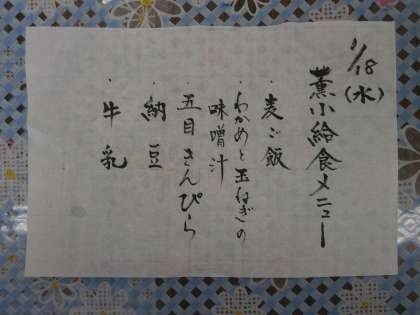 1/18(水)
薫小給食メニュー
・麦ご飯
・わかめと玉ねぎの
味噌汁
・五目きんぴら
・納豆
・牛乳